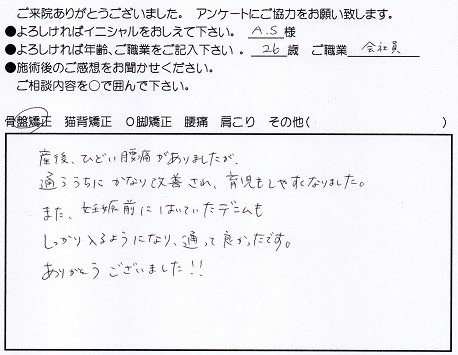 ご来院ありがとうございました。 アンケートにご協力をお願い致します。
●よろしければイニシャルをおしえて下さい。 A.S 様
●よろしければ年齢、ご職業をご記入下さい 。 26 歳 ご職業 会社員
●施術後のご感想をお聞かせください。
ご相談内容を○で囲んで下さい。
骨盤矯正 猫背矯正 O脚矯正 腰痛 肩こり その他( )
産後、ひどい腰痛がありましたが、
通ううちにかなり改善され、育児もしやすくなりました。
また、妊娠前にはいていたデニムも
しっかり入るようになり、通って良かったです。
ありがとうございました!!